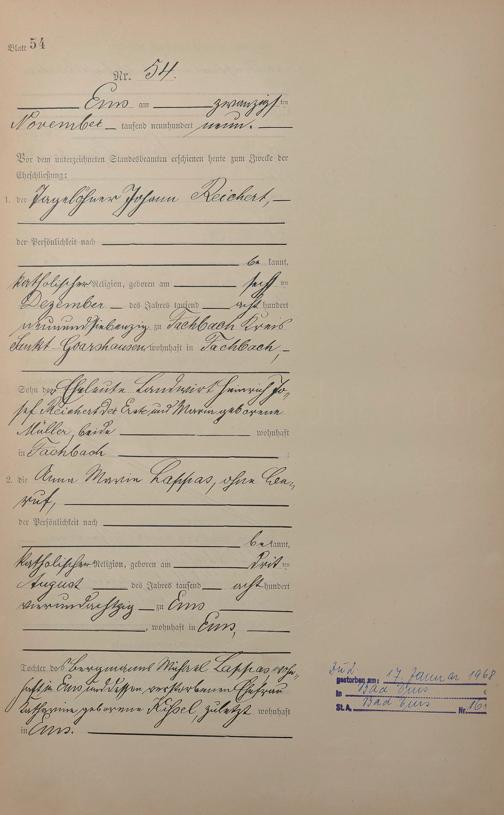 Blatt 54
Nr. 54.
Ems am zwanzigsten
November tausend neunhundert neun.
Vor dem unterzeichneten Standesbeamten erschienen heute zum Zwecke der
Eheschließung:
1. der Tagelöhner Johann Reichert,
der Persönlichkeit nach
be kannt,
katholischer Religion, geboren am sechsten
Dezember des Jahres tausend acht hundert
neunundsiebenzig zu Fachbach Kreis
Sankt Goarshausen, wohnhaft in Fachbach,
Sohn der Eheleute Landwirt Heinrich Jo-
sef Reichert der Erste und Maria geborene
Müller, beide wohnhaft
in Fachbach
2. die Anna Maria Lappas, ohne Be-
ruf,
der Persönlichkeit nach
be kannt,
katholischer Religion, geboren am dritten
August des Jahres tausend acht hundert
vierundachtzig zu Ems
, wohnhaft in Ems,
Tochter des Bergmanns Michael Lappas wohn-
haft in Ems, und dessen verstorbenen Ehefrau
Katharina geborene Kissel, zuletzt wohnhaft
in Ems.
gestorben am: 17. Januar 1968
in Bad Ems
St.A. Bad Ems Nr. 16